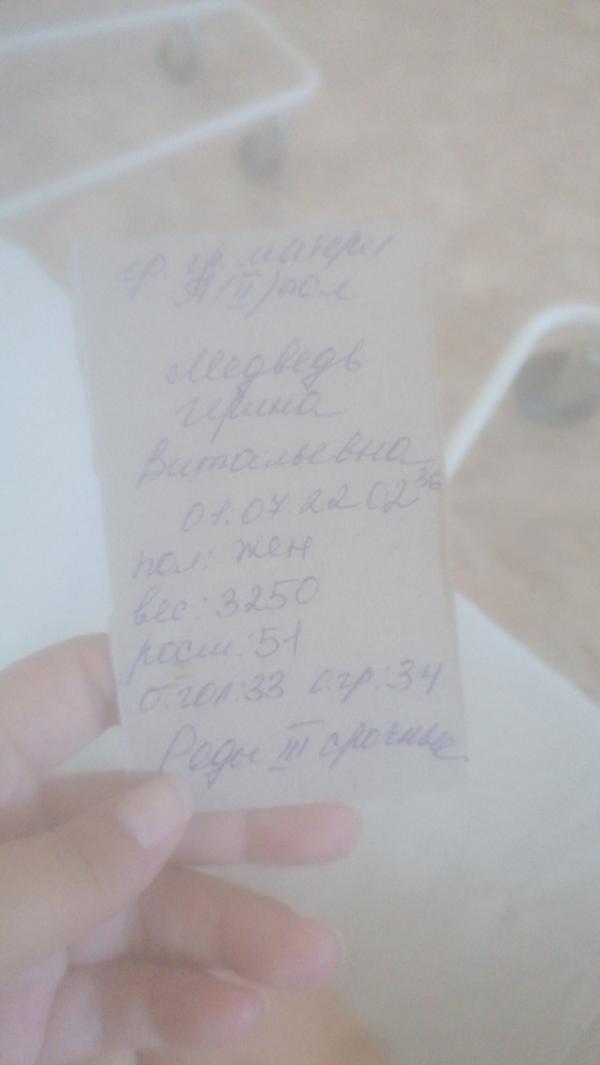 гр. матери
(II) пол
Медведь
Витальевна
01.07.22 02 36
пол: жен
вес: 3250
рост: 51
о.гол: 33 о.гр: 34
Роды III срочные